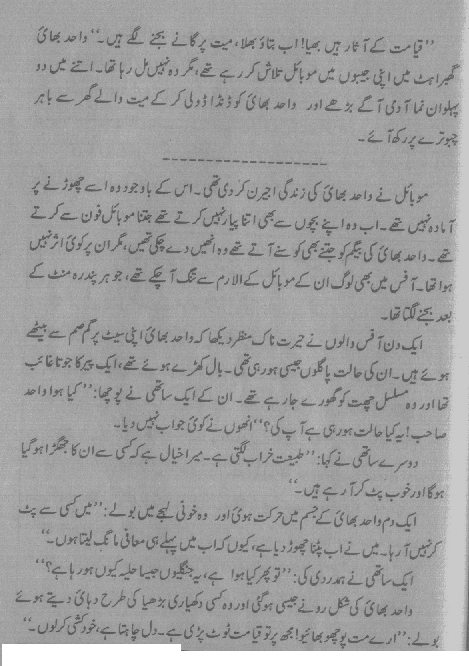 ’’قیامت کے آثار ہیں بھیا! اب بتاؤ بھلا، میت پر گانے بجنے لگے ہیں۔‘‘ واحد بھائی
گھبراہٹ میں اپنی جیبوں میں موبائل تلاش کر رہے تھے، مگر وہ نہیں مل رہا تھا۔ اتنے میں دو
پہلوان نما آدمی آگے بڑھے اور واحد بھائی کو ڈنڈا ڈولی کر کے میت والے گھر سے باہر
چبوترے پر رکھ آئے۔
--------------------
موبائل نے واحد بھائی کی زندگی اجیرن کر دی تھی۔ اس کے باوجود وہ اسے چھوڑنے پر
آمادہ نہیں تھے۔ اب وہ اپنے بچوں سے بھی اتنا پیار نہیں کرتے تھے جتنا موبائل فون سے کرتے
تھے۔ واحد بھائی کی بیگم کو جتنے بھی کوسنے آتے تھے وہ انھیں دے چکی تھیں، مگر ان پر کوئی اثر نہیں
ہوا تھا۔ آفس میں بھی لوگ ان کے موبائل کے الارم سے تنگ آ چکے تھے، جو ہر پندرہ منٹ کے
بعد بجنے لگتا تھا۔
ایک دن آفس والوں نے حیرت ناک منظر دیکھا کہ واحد بھائی اپنی سیٹ پر گم صم سے بیٹھے
ہوئے ہیں۔ ان کی حالت پاگلوں جیسی ہو رہی تھی۔ بال کھڑے ہوئے تھے، ایک پیر کا جوتا غائب
تھا اور وہ مسلسل چھت کو گھورے جا رہے تھے۔ ان کے ایک ساتھی نے پوچھا: ’’کیا ہوا واحد
صاحب! یہ کیا حالت ہو رہی ہے آپ کی؟‘‘ انھوں نے کوئی جواب نہیں دیا۔
دوسرے ساتھی نے کہا: ’’طبیعت خراب لگتی ہے۔ میرا خیال ہے کہ کسی سے ان کا جھگڑا ہو گیا
ہو گا اور خوب پٹ کر آ رہے ہیں۔‘‘
ایک دم واحد بھائی کے جسم میں حرکت ہوئی اور وہ خونی لہجے میں بولے: ’’میں کسی سے پٹ
کر نہیں آ رہا۔ میں نے اب پٹنا چھوڑ دیا ہے، کیوں کہ اب میں پہلے ہی معافی مانگ لیتا ہوں۔‘‘
ایک ساتھی نے ہمدردی کی: ’’تو پھر کیا ہوا ہے، یہ جنگلیوں جیسا حلیہ کیوں ہو رہا ہے؟‘‘
واحد بھائی کی شکل رونے جیسی ہو گئی اور وہ کسی دکھیاری بڑھیا کی طرح دہائی دیتے ہوئے
بولے: ’’ارے مت پوچھو بھائیو! مجھ پر تو قیامت ٹوٹ پڑی ہے۔ دل چاہتا ہے، خودکشی کر لوں۔‘‘